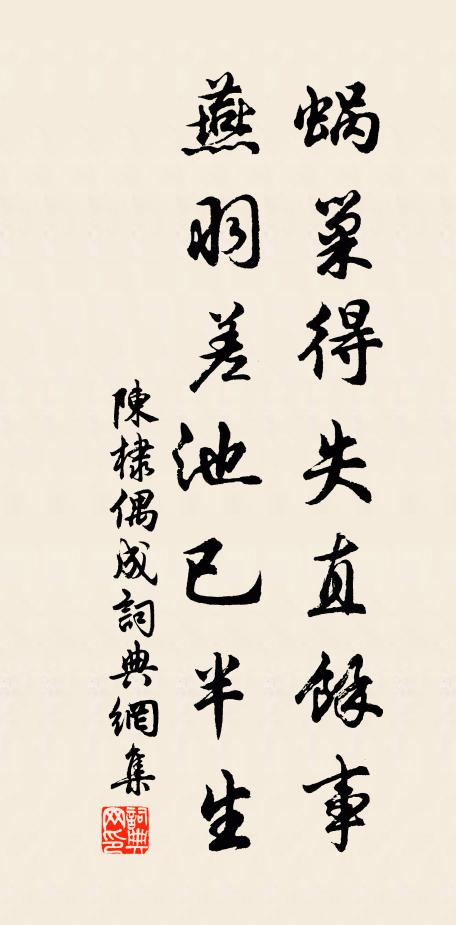 蝸巢得失直餘事
燕羽差池已半生
陳棣偶成詞典網集
詞典网印